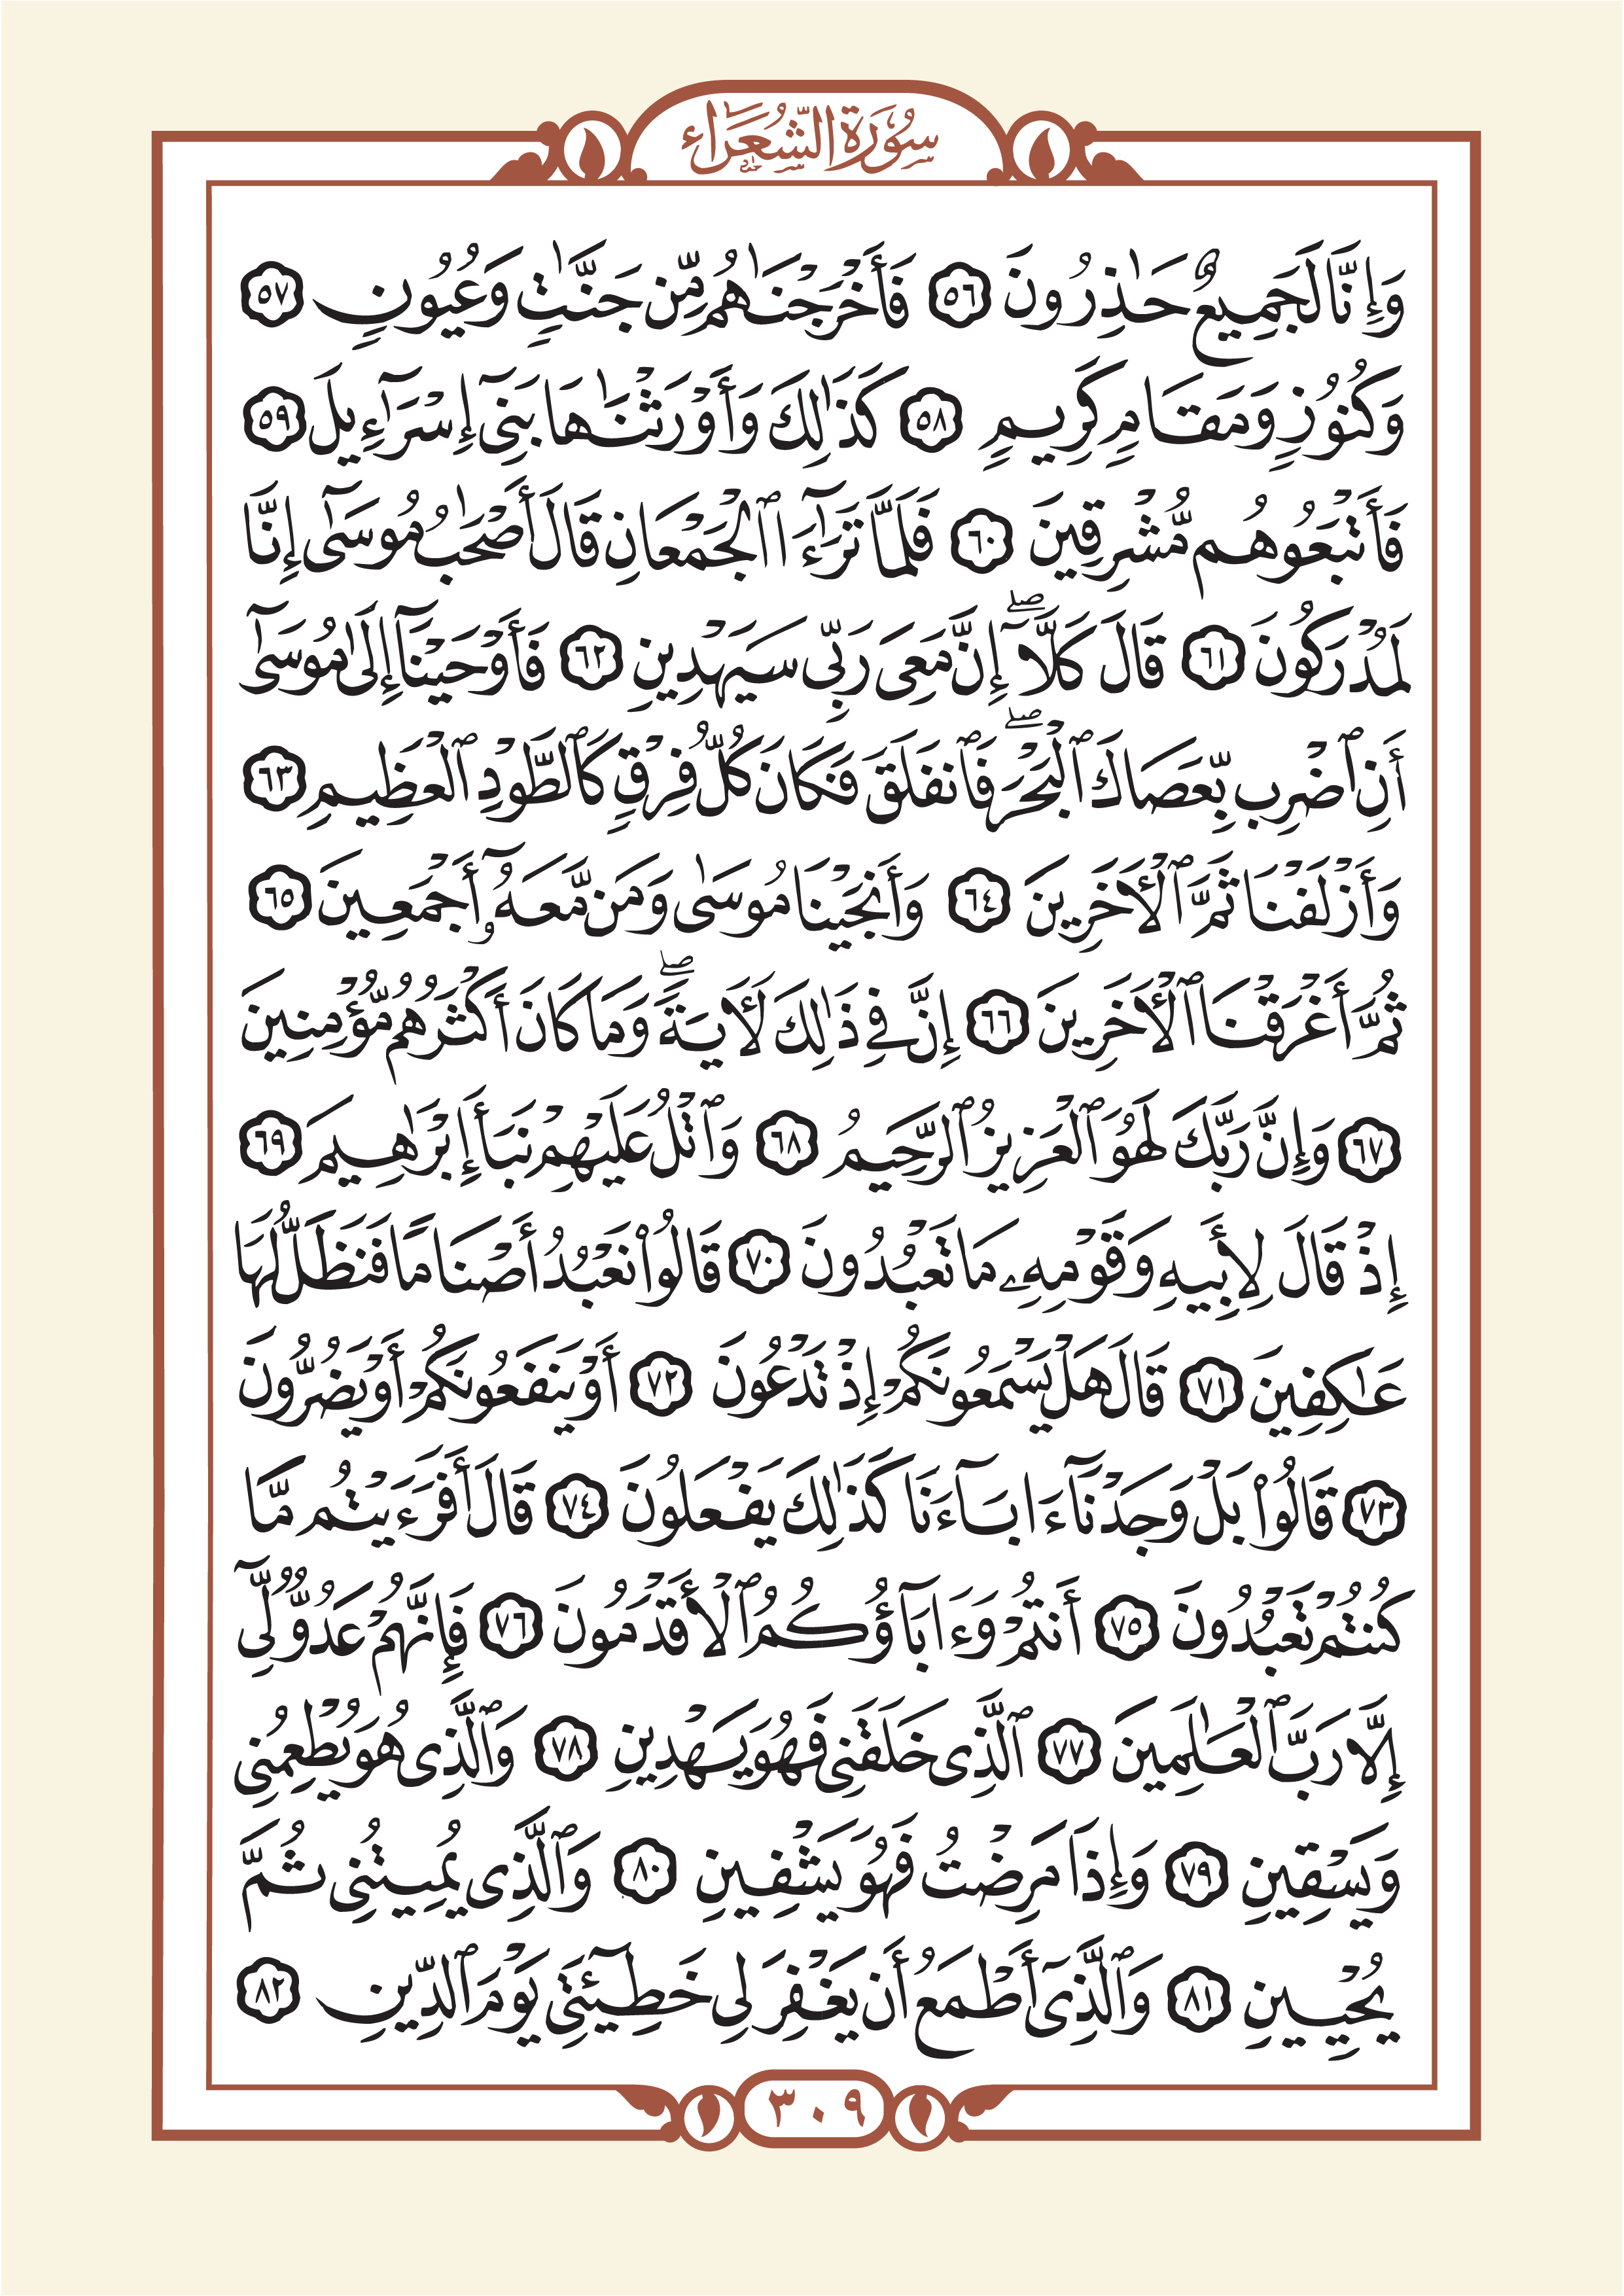 سُورَةُ الشُّعَرَاء
وَإِنَّا لَجَمِيعٌ حَٰذِرُونَ ٥٦ فَأَخْرَجْنَٰهُم مِّن جَنَّٰتٖ وَعُيُونٖ ٥٧
وَكُنُوزٖ وَمَقَامٖ كَرِيمٖ ٥٨ كَذَٰلِكَ وَأَوْرَثْنَٰهَا بَنِيٓ إِسْرَٰٓءِيلَ ٥٩
فَأَتْبَعُوهُم مُّشْرِقِينَ ٦٠ فَلَمَّا تَرَٰٓءَا ٱلْجَمْعَانِ قَالَ أَصْحَٰبُ مُوسَىٰٓ إِنَّا
لَمُدْرَكُونَ ٦١ قَالَ كَلَّآۖ إِنَّ مَعِيَ رَبِّي سَيَهْدِينِ ٦٢ فَأَوْحَيْنَآ إِلَىٰ مُوسَىٰٓ
أَنِ ٱضْرِب بِّعَصَاكَ ٱلْبَحْرَۖ فَٱنفَلَقَ فَكَانَ كُلُّ فِرْقٖ كَٱلطَّوْدِ ٱلْعَظِيمِ ٦٣
وَأَزْلَفْنَا ثَمَّ ٱلْأٓخَرِينَ ٦٤ وَأَنجَيْنَا مُوسَىٰ وَمَن مَّعَهُۥٓ أَجْمَعِينَ ٦٥
ثُمَّ أَغْرَقْنَا ٱلْأٓخَرِينَ ٦٦ إِنَّ فِي ذَٰلِكَ لَأٓيَةٗۖ وَمَا كَانَ أَكْثَرُهُم مُّؤْمِنِينَ
٦٧ وَإِنَّ رَبَّكَ لَهُوَ ٱلْعَزِيزُ ٱلرَّحِيمُ ٦٨ وَٱتْلُ عَلَيْهِمْ نَبَأَ إِبْرَٰهِيمَ ٦٩
إِذْ قَالَ لِأَبِيهِ وَقَوْمِهِۦ مَا تَعْبُدُونَ ٧٠ قَالُواْ نَعْبُدُ أَصْنَامٗا فَنَظَلُّ لَهَا
عَٰكِفِينَ ٧١ قَالَ هَلْ يَسْمَعُونَكُمْ إِذْ تَدْعُونَ ٧٢ أَوْ يَنفَعُونَكُمْ أَوْ يَضُرُّونَ
٧٣ قَالُواْ بَلْ وَجَدْنَآ ءَابَآءَنَا كَذَٰلِكَ يَفْعَلُونَ ٧٤ قَالَ أَفَرَءَيْتُم مَّا
كُنتُمْ تَعْبُدُونَ ٧٥ أَنتُمْ وَءَابَآؤُكُمُ ٱلْأَقْدَمُونَ ٧٦ فَإِنَّهُمْ عَدُوّٞ لِّيٓ
إِلَّا رَبَّ ٱلْعَٰلَمِينَ ٧٧ ٱلَّذِي خَلَقَنِي فَهُوَ يَهْدِينِ ٧٨ وَٱلَّذِي هُوَ يُطْعِمُنِي
وَيَسْقِينِ ٧٩ وَإِذَا مَرِضْتُ فَهُوَ يَشْفِينِ ٨٠ وَٱلَّذِي يُمِيتُنِي ثُمَّ
يُحْيِينِ ٨١ وَٱلَّذِيٓ أَطْمَعُ أَن يَغْفِرَ لِي خَطِيٓـَٔتِي يَوْمَ ٱلدِّينِ ٨٢
٣٠٩